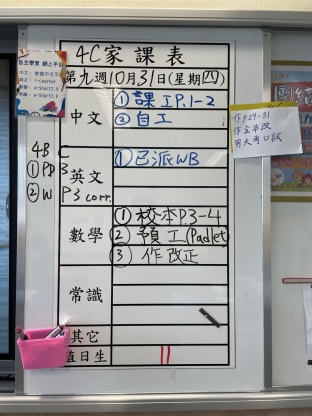 4C家課表
第九週10月31日(星期四)
自主學習 網上平台
中文
①課工P.1-2
②自工
作P.29-31
作全本改
明天考口試
4B C
①PD 3
②W P3 corr.
英文
①已派WB
數學
①校本P3-4
②預工(Padlet)
③作改正
常識
其它
值日生
11